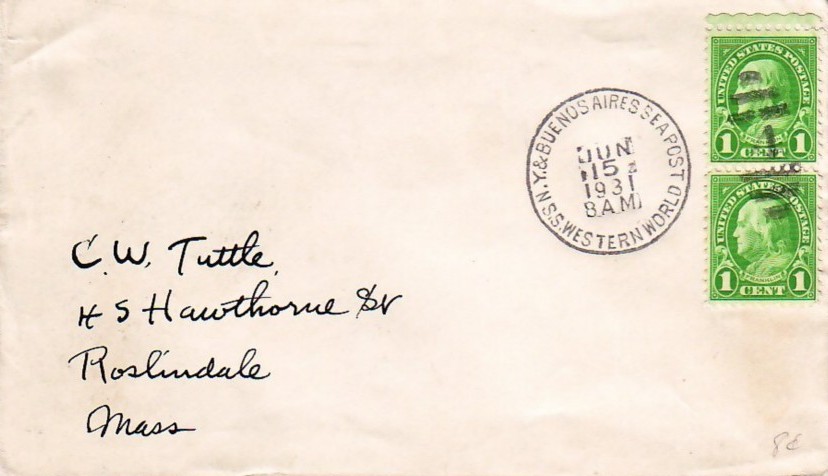 N.Y. & BUENOS AIRES SEA POST
JUN
15
1931
8 A.M
S.S. WESTERN WORLD
UNITED STATES POSTAGE
FRANKLIN
1 CENT 1
UNITED STATES POSTAGE
FRANKLIN
1 CENT 1
C. W. Tuttle,
45 Hawthorne St
Roslindale
Mass